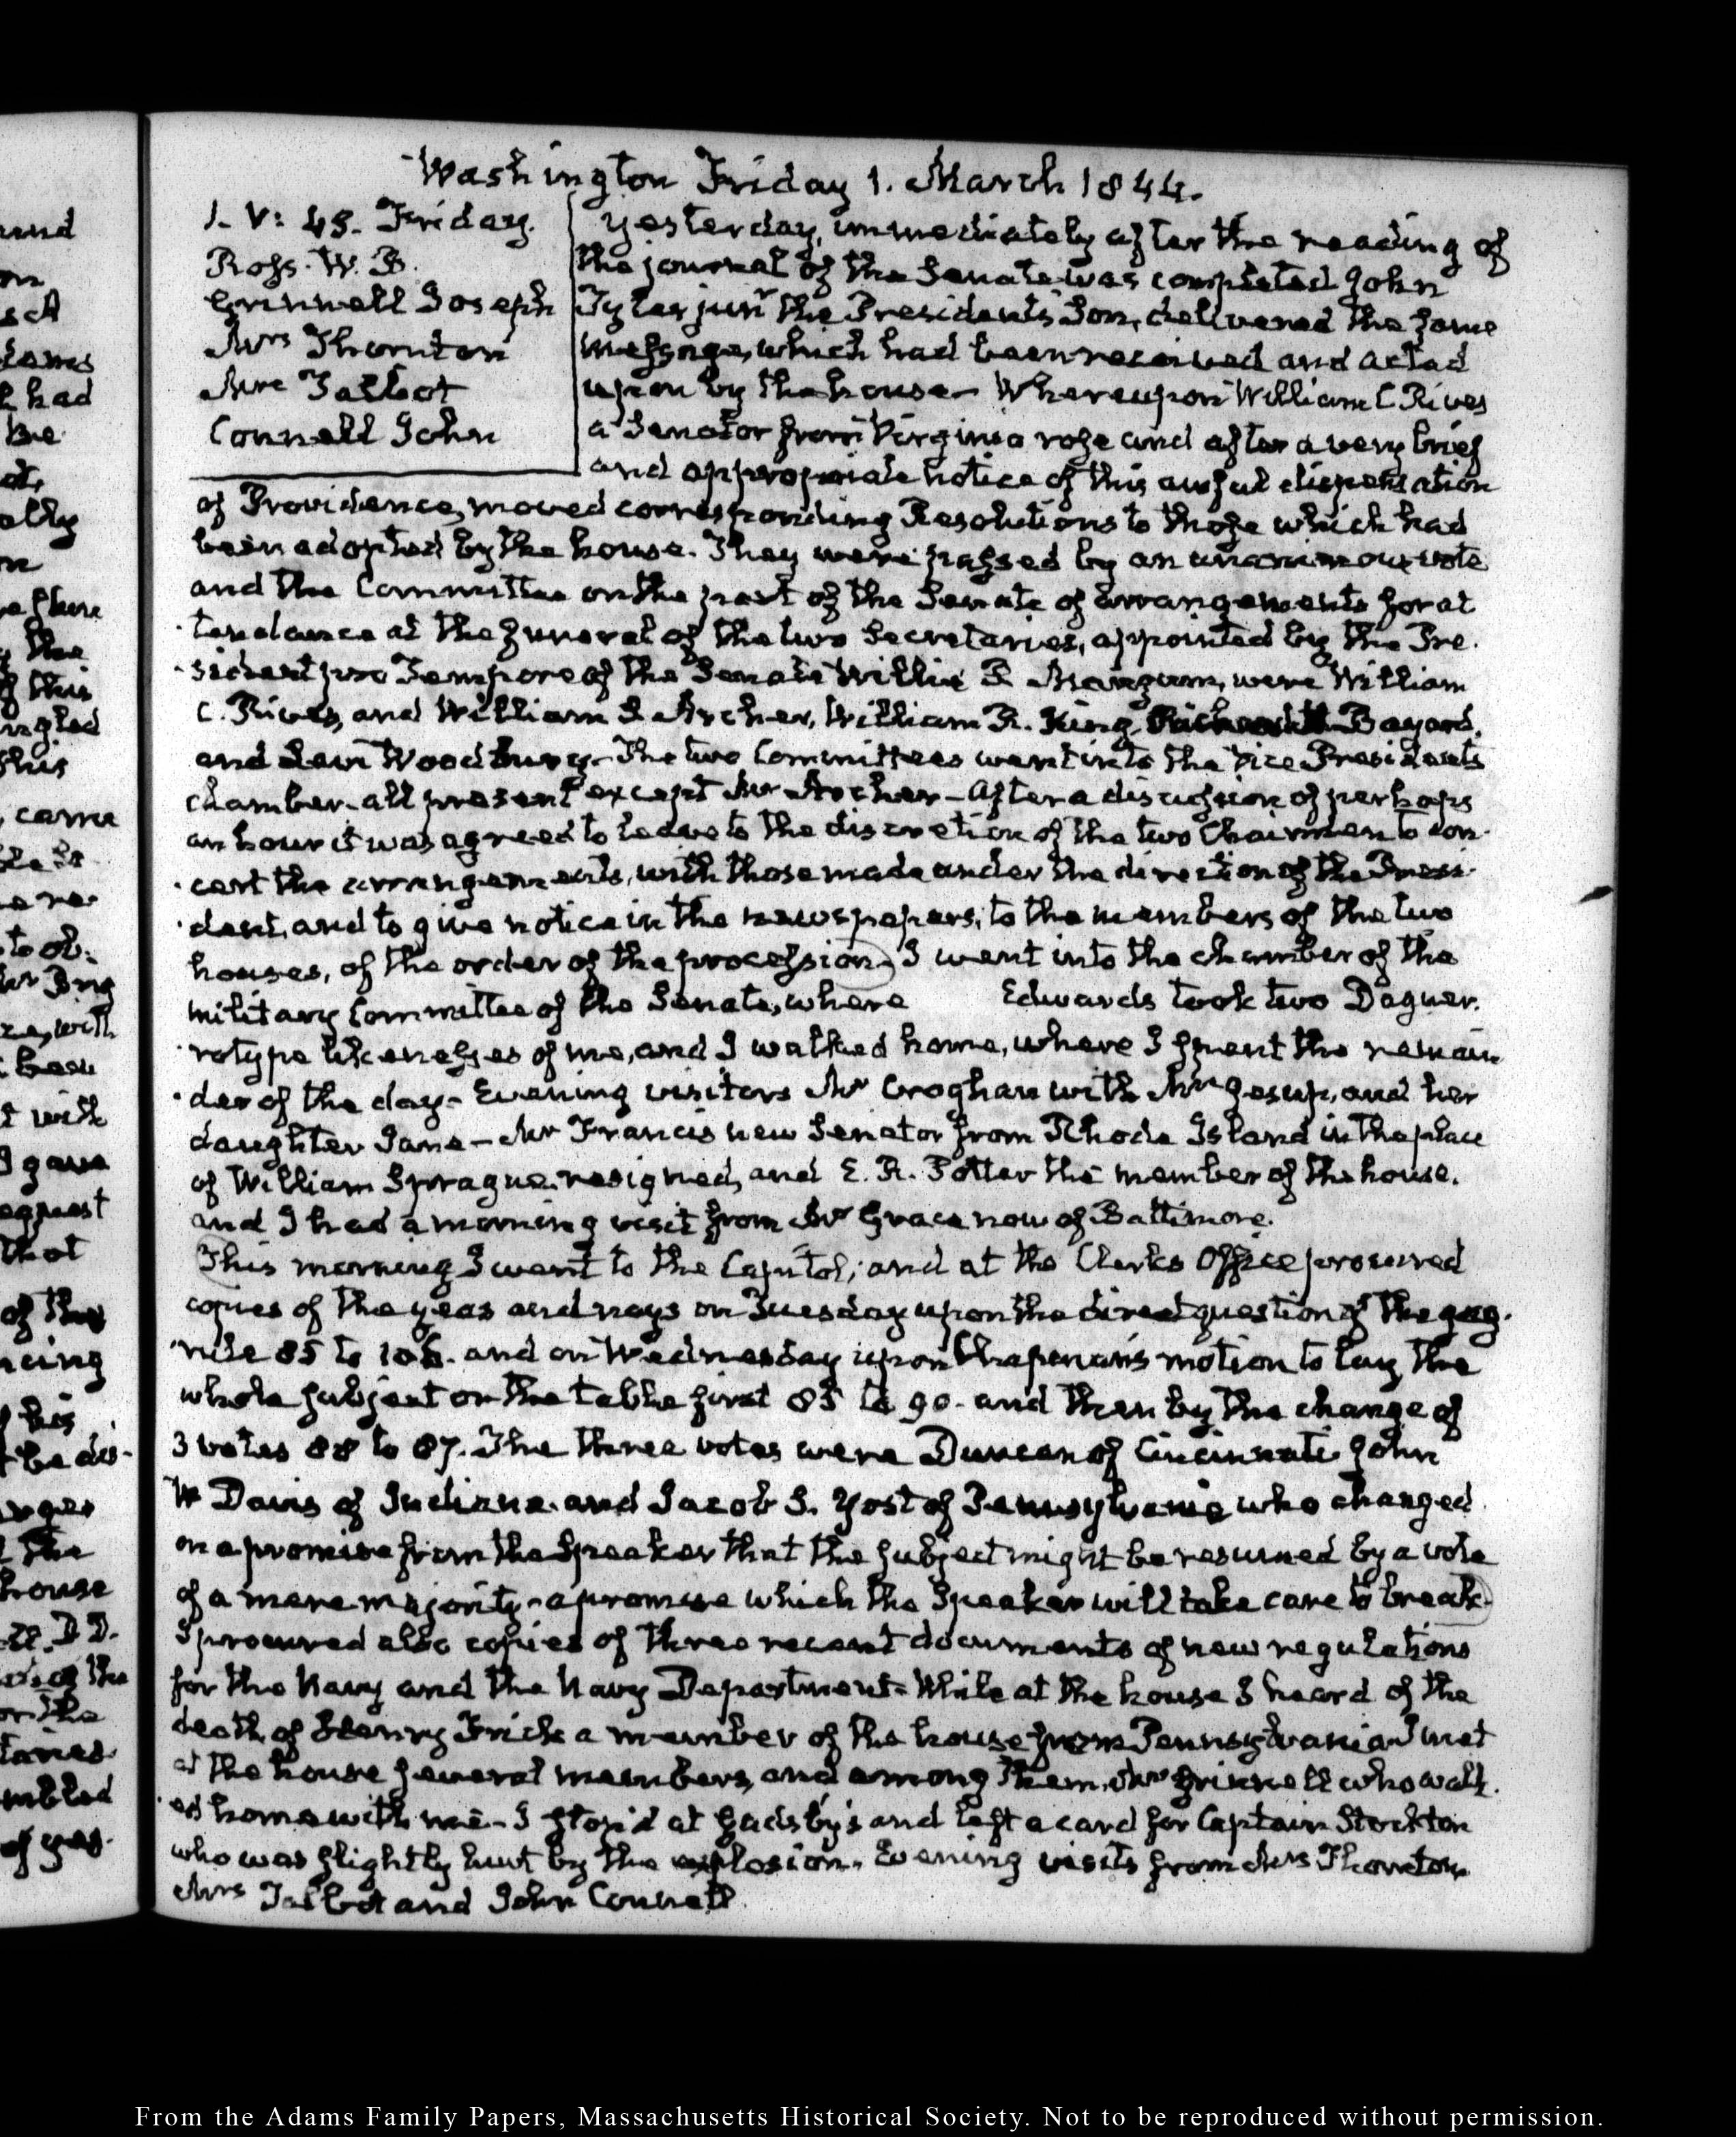 Washington Friday 1. March 1844.
1. V: 45. Friday.
Ross. W. B.
Grinnell Joseph
Mrs Thornton
Mrs Talbot
Connell John
Yesterday, immediately after the reading of
the journal of the Senate was completed John
Tyler junr the Presidents Son, delivered the same
message, which had been received and acted
upon by the house- Whereupon William C Rives
a Senator from Virginia rose and after a very brief
and appropriate notice of this awful dispensation
of Providence, moved corresponding Resolutions to those which had
been adopted by the house. They were passed by an unanimous vote
and the Committee on the part of the Senate of arrangements for at
tendance at the funeral of the two Secretaries, appointed by the Pre.
sident pro Tempore of the Senate Willie P. Mangum, were William
C. Rives, and William S. Archer, William R. King, Bayard,
and Levi Woodbury- The two Committees went into the Vice-Presidents
chamber- all present except Mr Archer- after a discussion of perhaps
an hour it was agreed to leave to the discretion of the two Chairmen to con-
cert the arrangements, with those made under the direction of the Presi-
dent, and to give notice in the newspapers, to the members of the two
houses, of the order of the procession- I went into the chamber of the
military Committee of the Senate, where Edwards took two Daguer.
rotype likenesses of me, and I walked home, where I spent the remain
der of the day- Evening visitors Mr Croghan with Mrs Jesup, and her
daughter Jane- Mr Francis new Senator from Rhode Island in the place
of William Sprague resigned, and E. R. Potter the member of the house.
and I had a morning visit from Mr Grace now of Baltimore.
This morning I went to the Capitol; and at the Clerks Office procured
copies of the yeas and nays on Tuesday upon the direct question of the gag-
rule 85 to 106. and on Wednesday upon Chapman's motion to lay the
whole subject on the table first 85 to 90. and then by the change of
3 votes 88 to 87. The three votes were Duncan of Cincinnati John
W Davis of Indiana and Jacob S. Yost of Pennsylvania who changed
on a promise from the Speaker that the subject might be resumed by a vote
of a mere majority- a promise which the Speaker will take care to break-
I procured also copies of three recent documents of new regulations
for the Navy and the Navy Department- While at the house I heard of the
death of Henry Frick a member of the house from Pennsylvania I met
at the house several members, and among them, Mr Grinnell who walk.
ed home with me- I stop'd at Gadsby's and left a card for Captain Stockton
who was slightly hurt by the explosion. Evening visits from Mrs Thornton
Mrs Talbot and John Connell
From the Adams Family Papers, Massachusetts Historical Society. Not to be reproduced without permission.